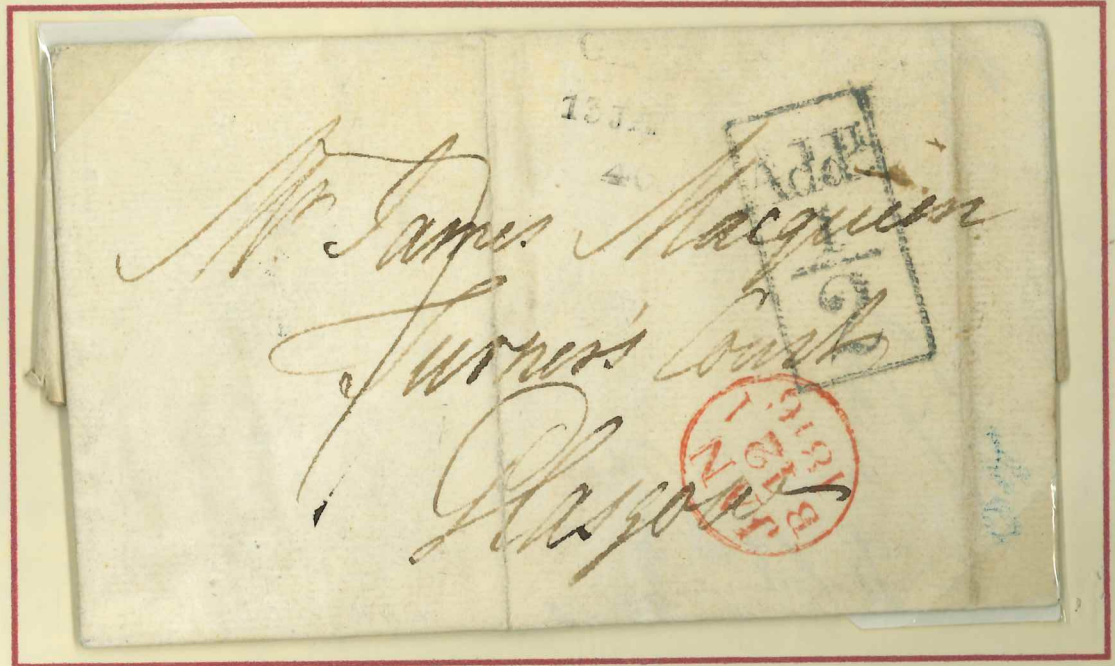 13 JA
40
Addl
1/2
Mr James Macqueen
Turner's Court
Glasgow
JAN
12
B 1816